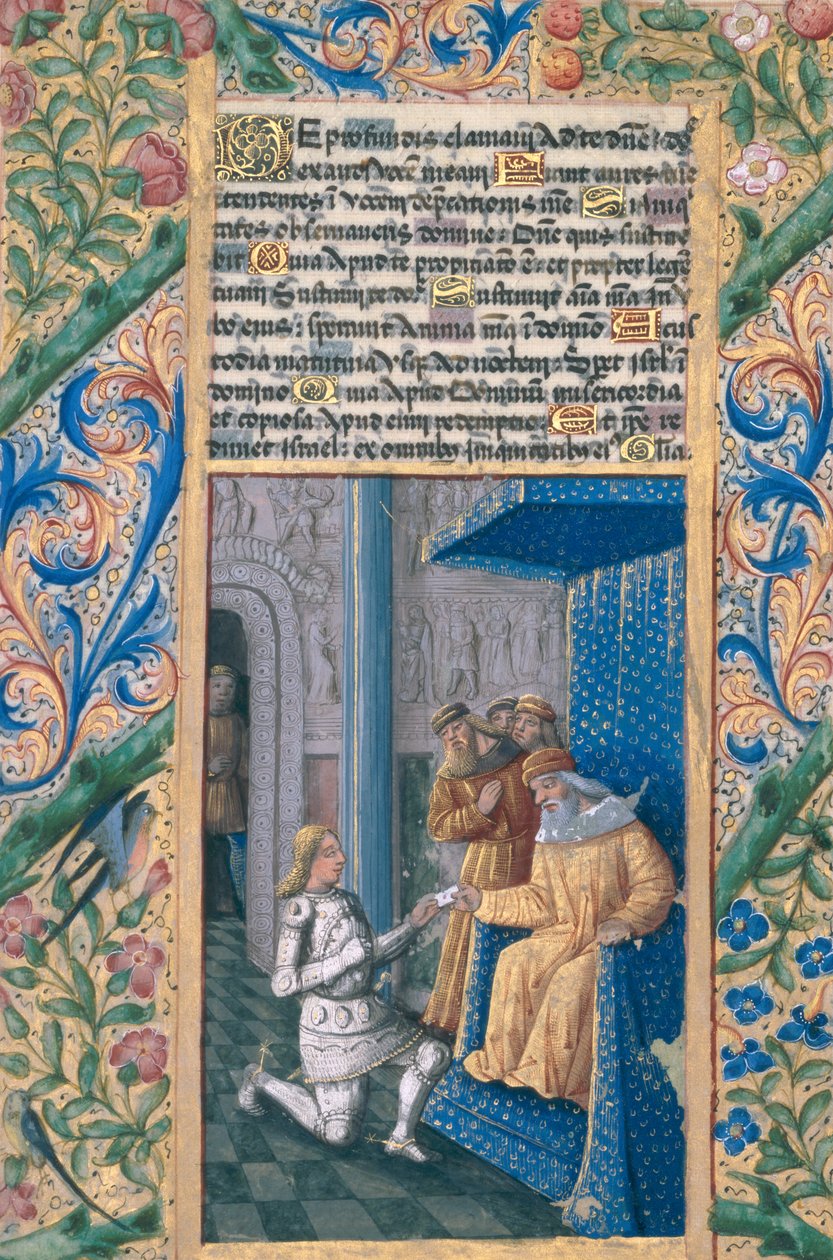 De profundis clamavi Ad te dn̄e: dn̄e
exaudi vocē meam Fiant aures tue
intendentes ī vocem dep̄cationis mē Si iniq
tates observaveris domine: Dn̄e quis sustine
bit Quia Apud te propiciatō ē: et propter legē
tuam Sustinui te dn̄e: Sustinuit aīa mēa In v̄
bo ejus: speravit Anima mēa ī domino A cus
todia matutina Usq Ad noctem: Speret isrl ī
domino Quia Apud Dominum misericordia
et copiosa Apud eum redemptio Et ip̄e re
dimet Israel: ex omnibꝰ Iniquitatibꝰ eiꝰ Gl̄ia.